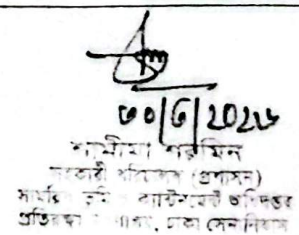 ৩০/৫/২০২৬
শামীমা শরমিন
সহকারী পরিচালক (প্রশাসন)
সামরিক ভূমি ও ক্যান্টনমেন্ট অধিদপ্তর
প্রতিরক্ষা মন্ত্রণালয়, ঢাকা সেনানিবাস